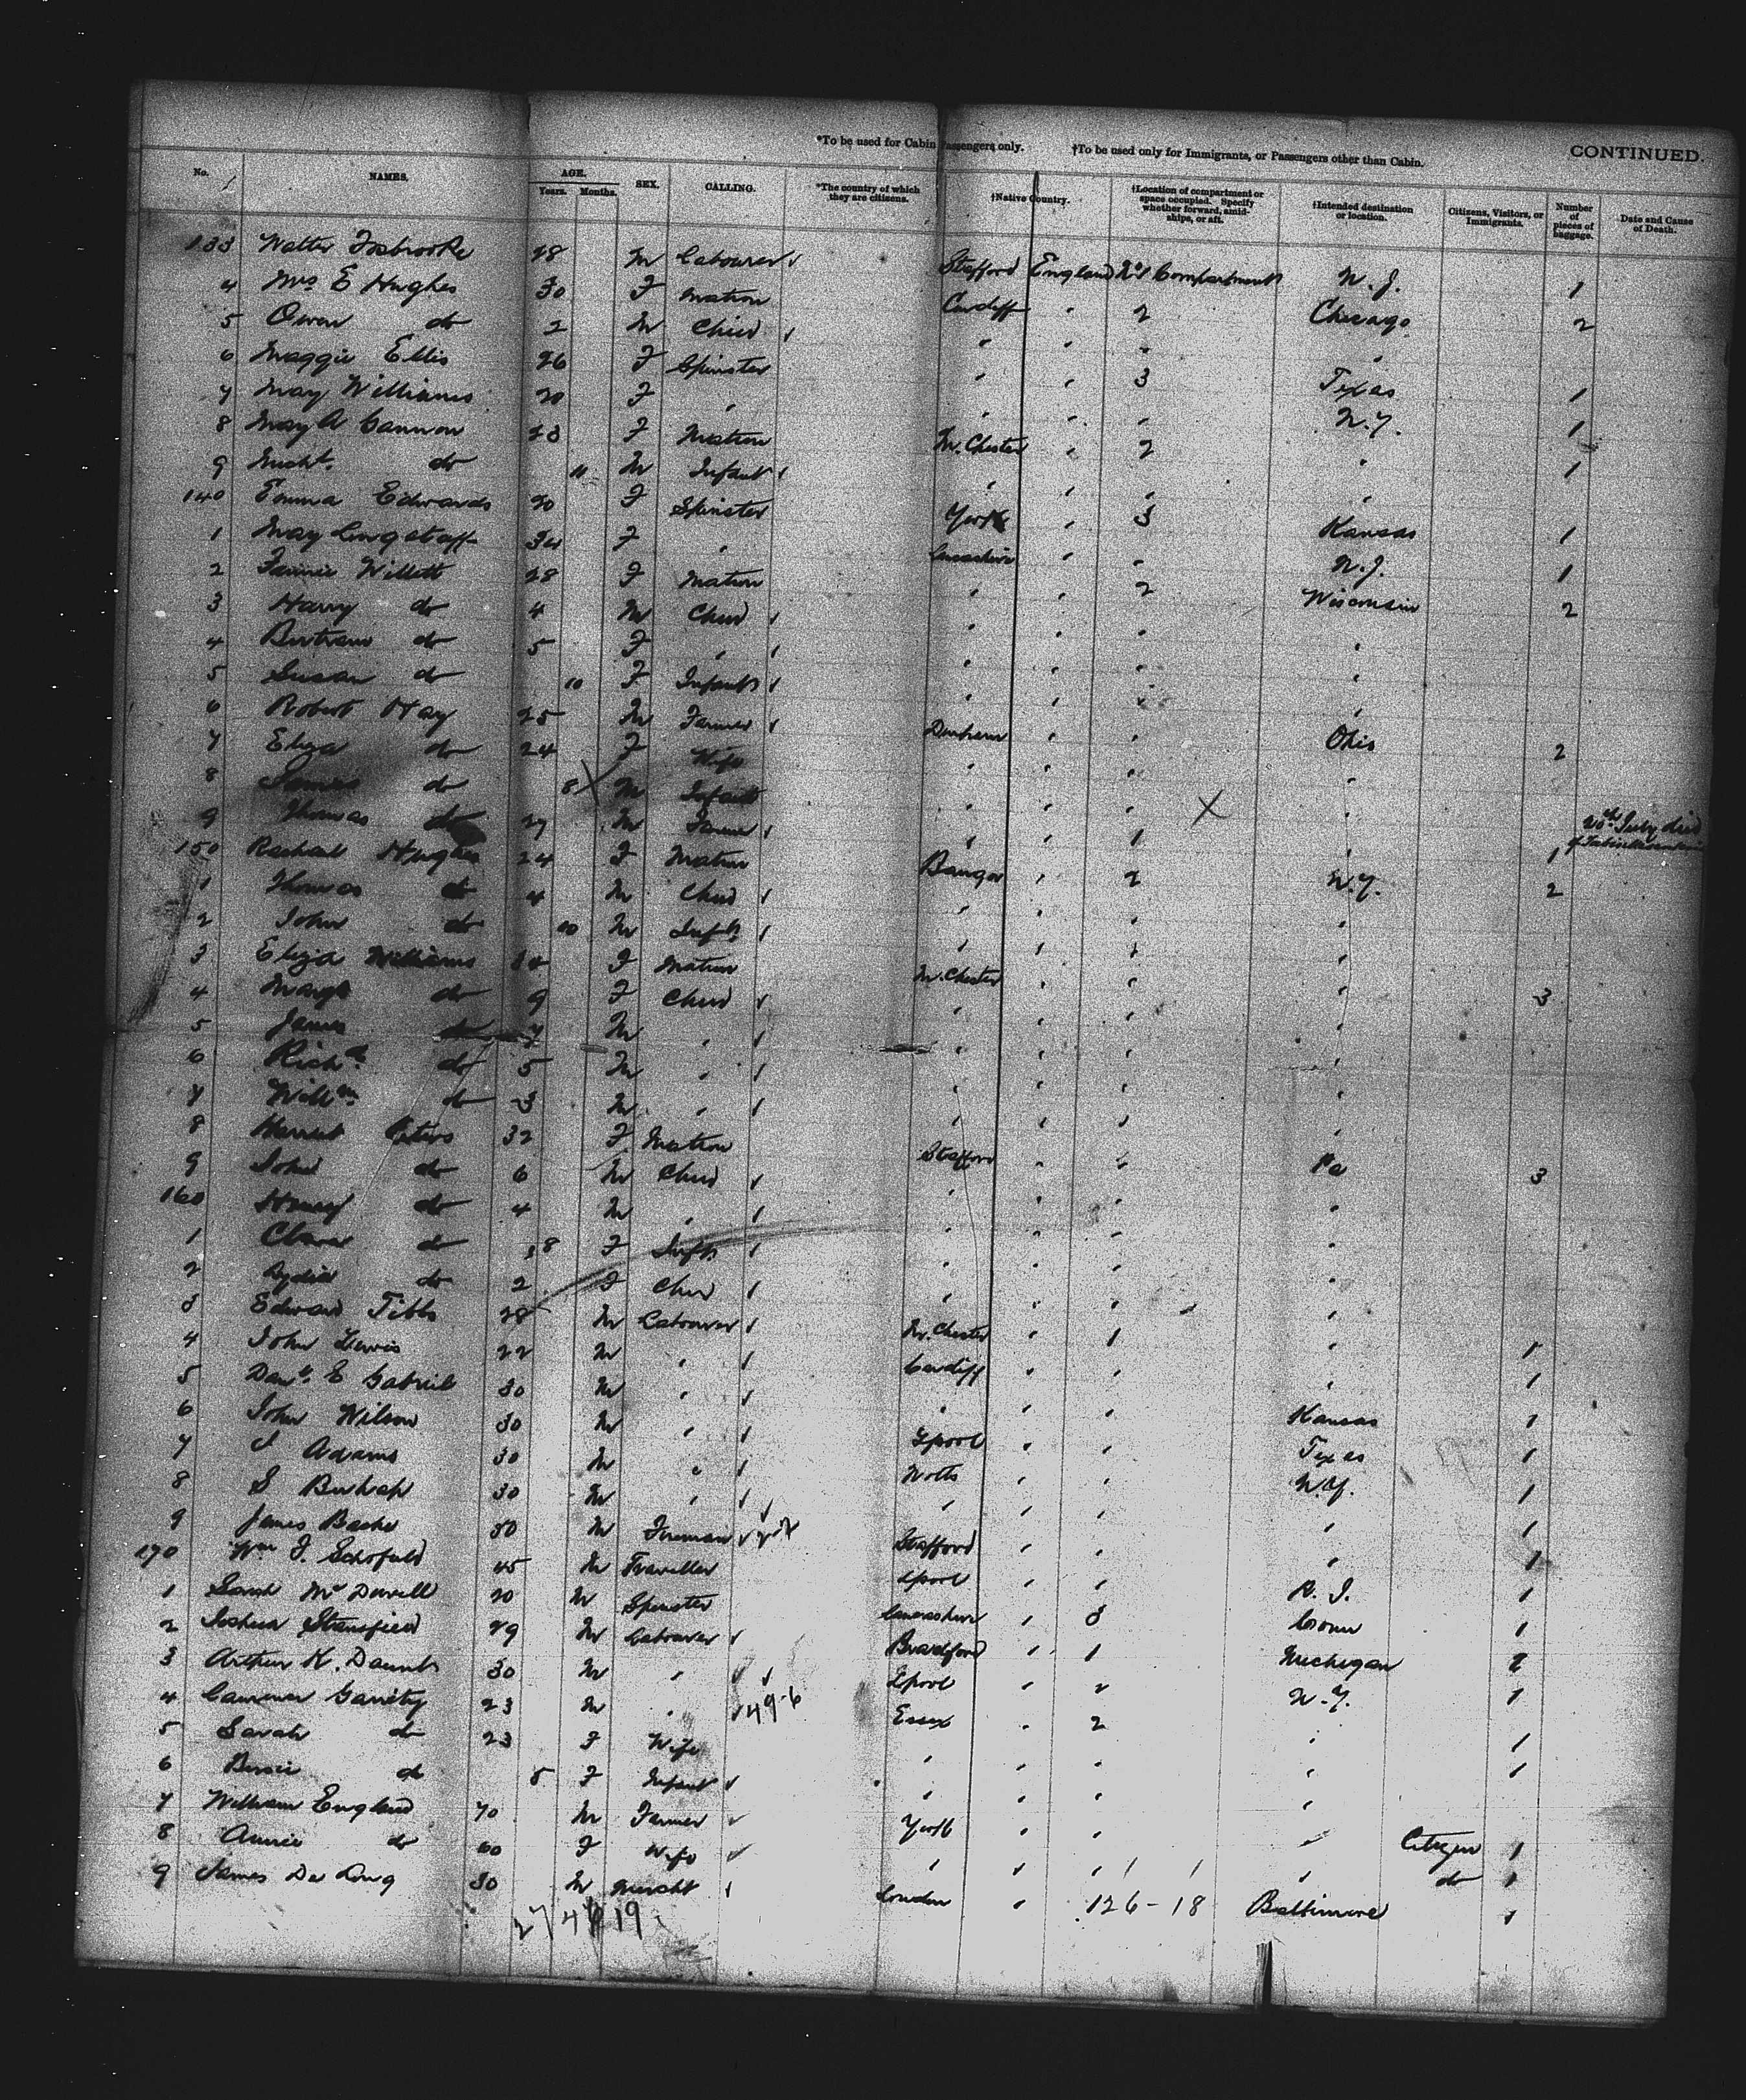 *To be used for Cabin Passengers only. †To be used only for Immigrants, or Passengers other than Cabin. CONTINUED.
No. NAMES. AGE. Years. Months. SEX. CALLING. *The country of which they are citizens. †Native Country. †Location of compartment or space occupied. Specify whether forward, amidships, or aft. †Intended destination or location. Citizens, Visitors, or Immigrants. Number of pieces of baggage. Date and Cause of Death.
133 Walter Fosbrooke 28 M Labourer Stafford England No 1 Compartment N.J. 1
4 Mrs E Hughes 30 F Matron Cardiff " 2 Chicago 2
5 Owen do 2 M Child " " " "
6 Maggie Ellis 26 F Spinster " " 3 Texas 1
7 May Williams 20 F " " " " N.Y. 1
8 May A Gannon 28 F Matron M.Chester " 2 " 1
9 do 11 M Infant " " " "
140 Emma Edwards 20 F Spinster York " 3 Kansas 1
1 May Longstaff 34 F " Lancashire " " N.J. 1
2 Fannie Willett 28 F Matron " " 2 Wisconsin 2
3 Harry do 4 M Child " " " "
4 Bertram do 5 F " " " " "
5 Susan do 10 F Infant " " " "
6 Robert Hay 25 M Farmer Durham " " Ohio 2
7 Eliza do 24 F Wife " " " "
8 do 8 M Infant " " " " 20th July died of
9 Thomas do 27 M Farmer " " 1 " 1
150 Rachael Hughes 24 F Matron Bangor " 2 N.Y. 2
1 Thomas do 4 M Child " " " "
2 John do 10 M Inft " " " "
3 Eliza Williams 34 F Matron M.Chester " " " 3
4 Margt do 9 F Child " " " "
5 James do 7 M " " " " "
6 Richd do 5 M " " " " "
7 Willm do 3 M " " " " "
8 Harriet Peters 32 F Matron Stafford " " Pa 3
9 John do 6 M Child " " " "
160 Henry do 4 M " " " " "
1 Clara do 18 F Inft " " " "
2 Lydia do 2 F Child " " " "
3 Edward Tibbs 28 M Labourer M.Chester " 1 " 1
4 John Lewis 22 M " Cardiff " " " 1
5 E Gabriel 30 M " " " " Kansas 1
6 John Wilson 30 M " Lpool " " Texas 1
7 J Adams 30 M " Notts " " N.Y. 1
8 S 30 M " " " " " 1
9 James Bache 30 M Fireman Stafford " " " 1
170 Wm F. Schofield 45 M Traveller Lpool " " R.I. 1
1 Sarah McDowell 20 M Spinster Lancashire " 3 Conn 1
2 Joshua Stansfield 29 M Labourer Bradford " 1 Michigan 2
3 Arthur K. Daunt 30 M " Lpool " " N.Y. 1
4 Garrity 23 M " 49-6 Essex " 2 " 1
5 Sarah do 23 F Wife " " " " 1
6 Bessie do 8 F Infant " " " "
7 William England 70 M Farmer York " " " Citizen 1
8 Annie do 60 F Wife " " " " do 1
9 James De Long 30 M Mercht London " 126-18 Baltimore 1
27 4 19